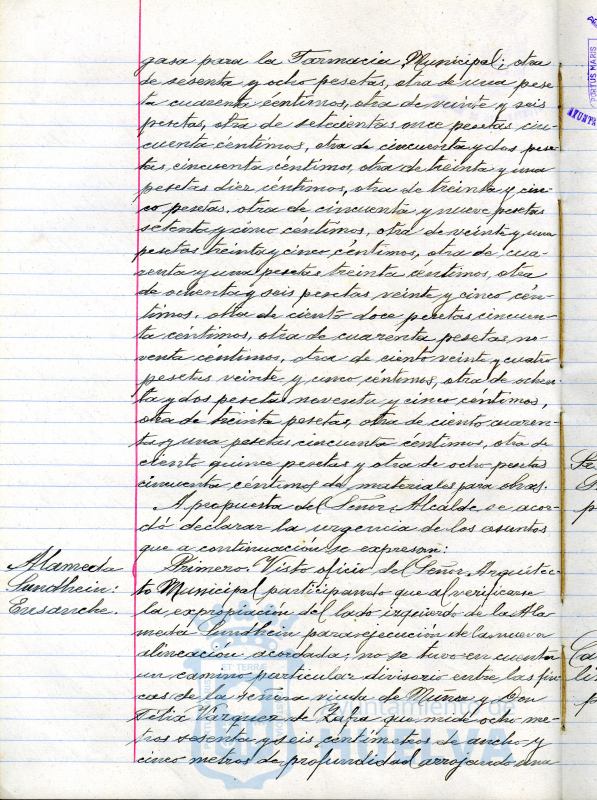 gasa para la Farmacia Municipal; otra
de sesenta y ocho pesetas, otra de una pese
ta cuarenta céntimos, otra de veinte y seis
pesetas, otra de setecientas once pesetas cin-
cuenta céntimos, otra de cincuenta y dos pese-
tas, cincuenta céntimos, otra de treinta y una
pesetas diez céntimos, otra de treinta y cin-
co pesetas, otra de cincuenta y nueve pesetas
setenta y cinco céntimos, otra de veinte y una
pesetas treinta y cinco céntimos, otra de cua-
renta y una pesetas treinta céntimos, otra
de ochenta y seis pesetas veinte y cinco cén-
timos, otra de ciento doce pesetas cincuen-
ta céntimos, otra de cuarenta pesetas no-
venta céntimos, otra de ciento veinte y cuatro
pesetas veinte y cinco céntimos, otra de ochen-
ta y dos pesetas noventa y cinco centimos,
otra de treinta pesetas, otra de ciento cuaren-
ta y una pesetas cincuenta céntimos, otra de
ciento quince pesetas y otra de ocho pesetas
cincuenta céntimos de materiales para obras.
A propuesta del Señor Alcalde se acor-
dó declarar la urgencia de los asuntos
que a continuación se expresan:
Alameda
Sundhein:
Ensanche.
Primero. Visto oficio del Señor Arquitec-
to Municipal participando que al verificarse
la expropiación del lado izquierdo de la Ala
meda Sundhein para ejecución de la nueva
alineación acordada, no se tuvo en cuenta
un camino particular divisorio entre las fin-
cas de la Señora viuda de Muñoz y Don
Félix Vázquez de Zafra que mide ocho me-
tros sesenta y seis centímetros de ancho y
cinco metros de profundidad arrojando una
PORTUS MARIS
AYUNTA
ET TERRAE
Ayuntamiento de
HUELVA